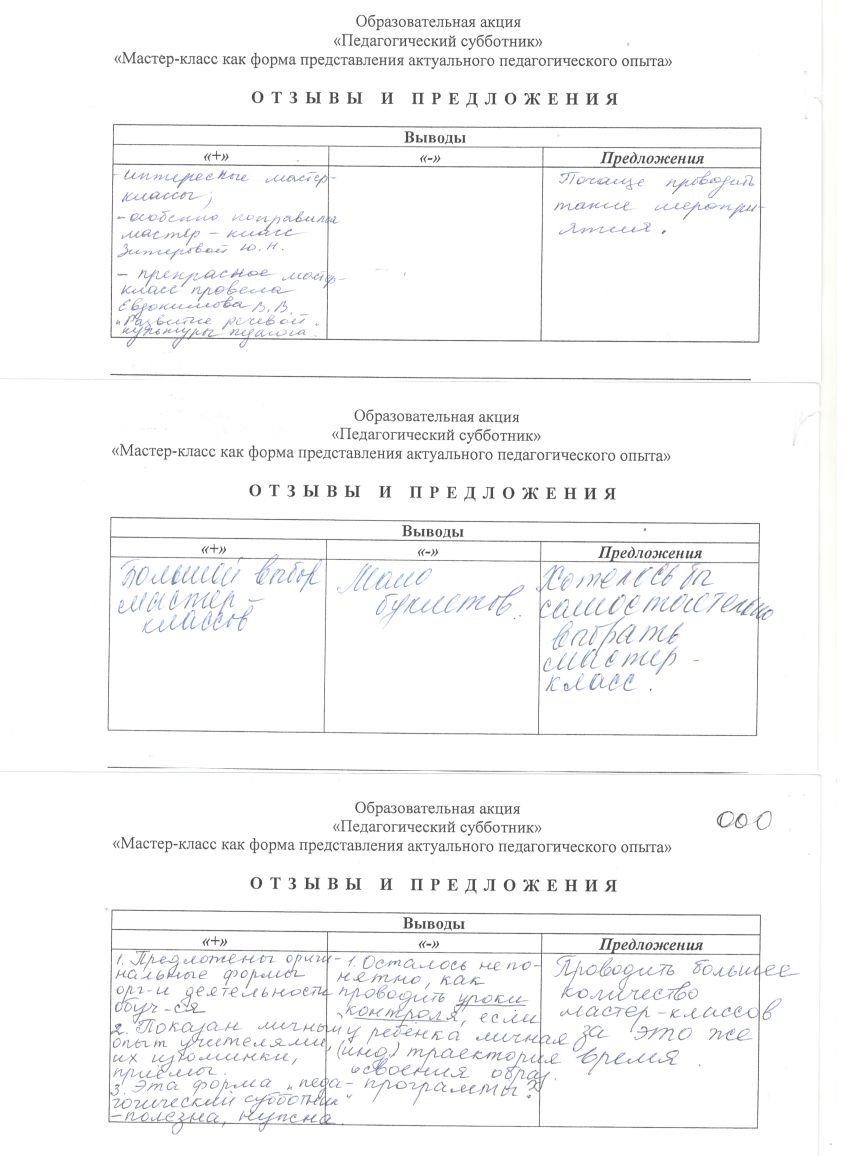 Образовательная акция
«Педагогический субботник»
«Мастер-класс как форма представления актуального педагогического опыта»
ОТЗЫВЫ И ПРЕДЛОЖЕНИЯ
Выводы
«+»
«-»
Предложения
- интересные мастер-
классы;
- особенно понравился
мастер - класс
Ю.Н.
- прекрасное мастер-
класс провела
Евдокимова В.В.
„Развитие речевой
культуры педагога“.
Почаще проводить
такие меропри-
ятия.
Образовательная акция
«Педагогический субботник»
«Мастер-класс как форма представления актуального педагогического опыта»
ОТЗЫВЫ И ПРЕДЛОЖЕНИЯ
Выводы
«+»
«-»
Предложения
Большой выбор
мастер-
классов
Мало
буклетов.
Хотелось бы
самостоятельно
выбрать
мастер-
класс.
Образовательная акция
«Педагогический субботник»
«Мастер-класс как форма представления актуального педагогического опыта»
ООО
ОТЗЫВЫ И ПРЕДЛОЖЕНИЯ
Выводы
«+»
«-»
Предложения
1. Предложены ориги-
нальные формы
орг-и деятельности
обуч-ся
2. Показан личный
опыт учителями,
их изюминки,
приёмы.
3. Эта форма „педа-
гогический субботник“
- полезна, нужна.
1. Осталось непо-
нятно, как
проводить уроки
„контроля“, если
у ребёнка личная
(инд.) траектория
освоения образ.
программы?
Проводить большее
количество
мастер-классов
за это же
время.